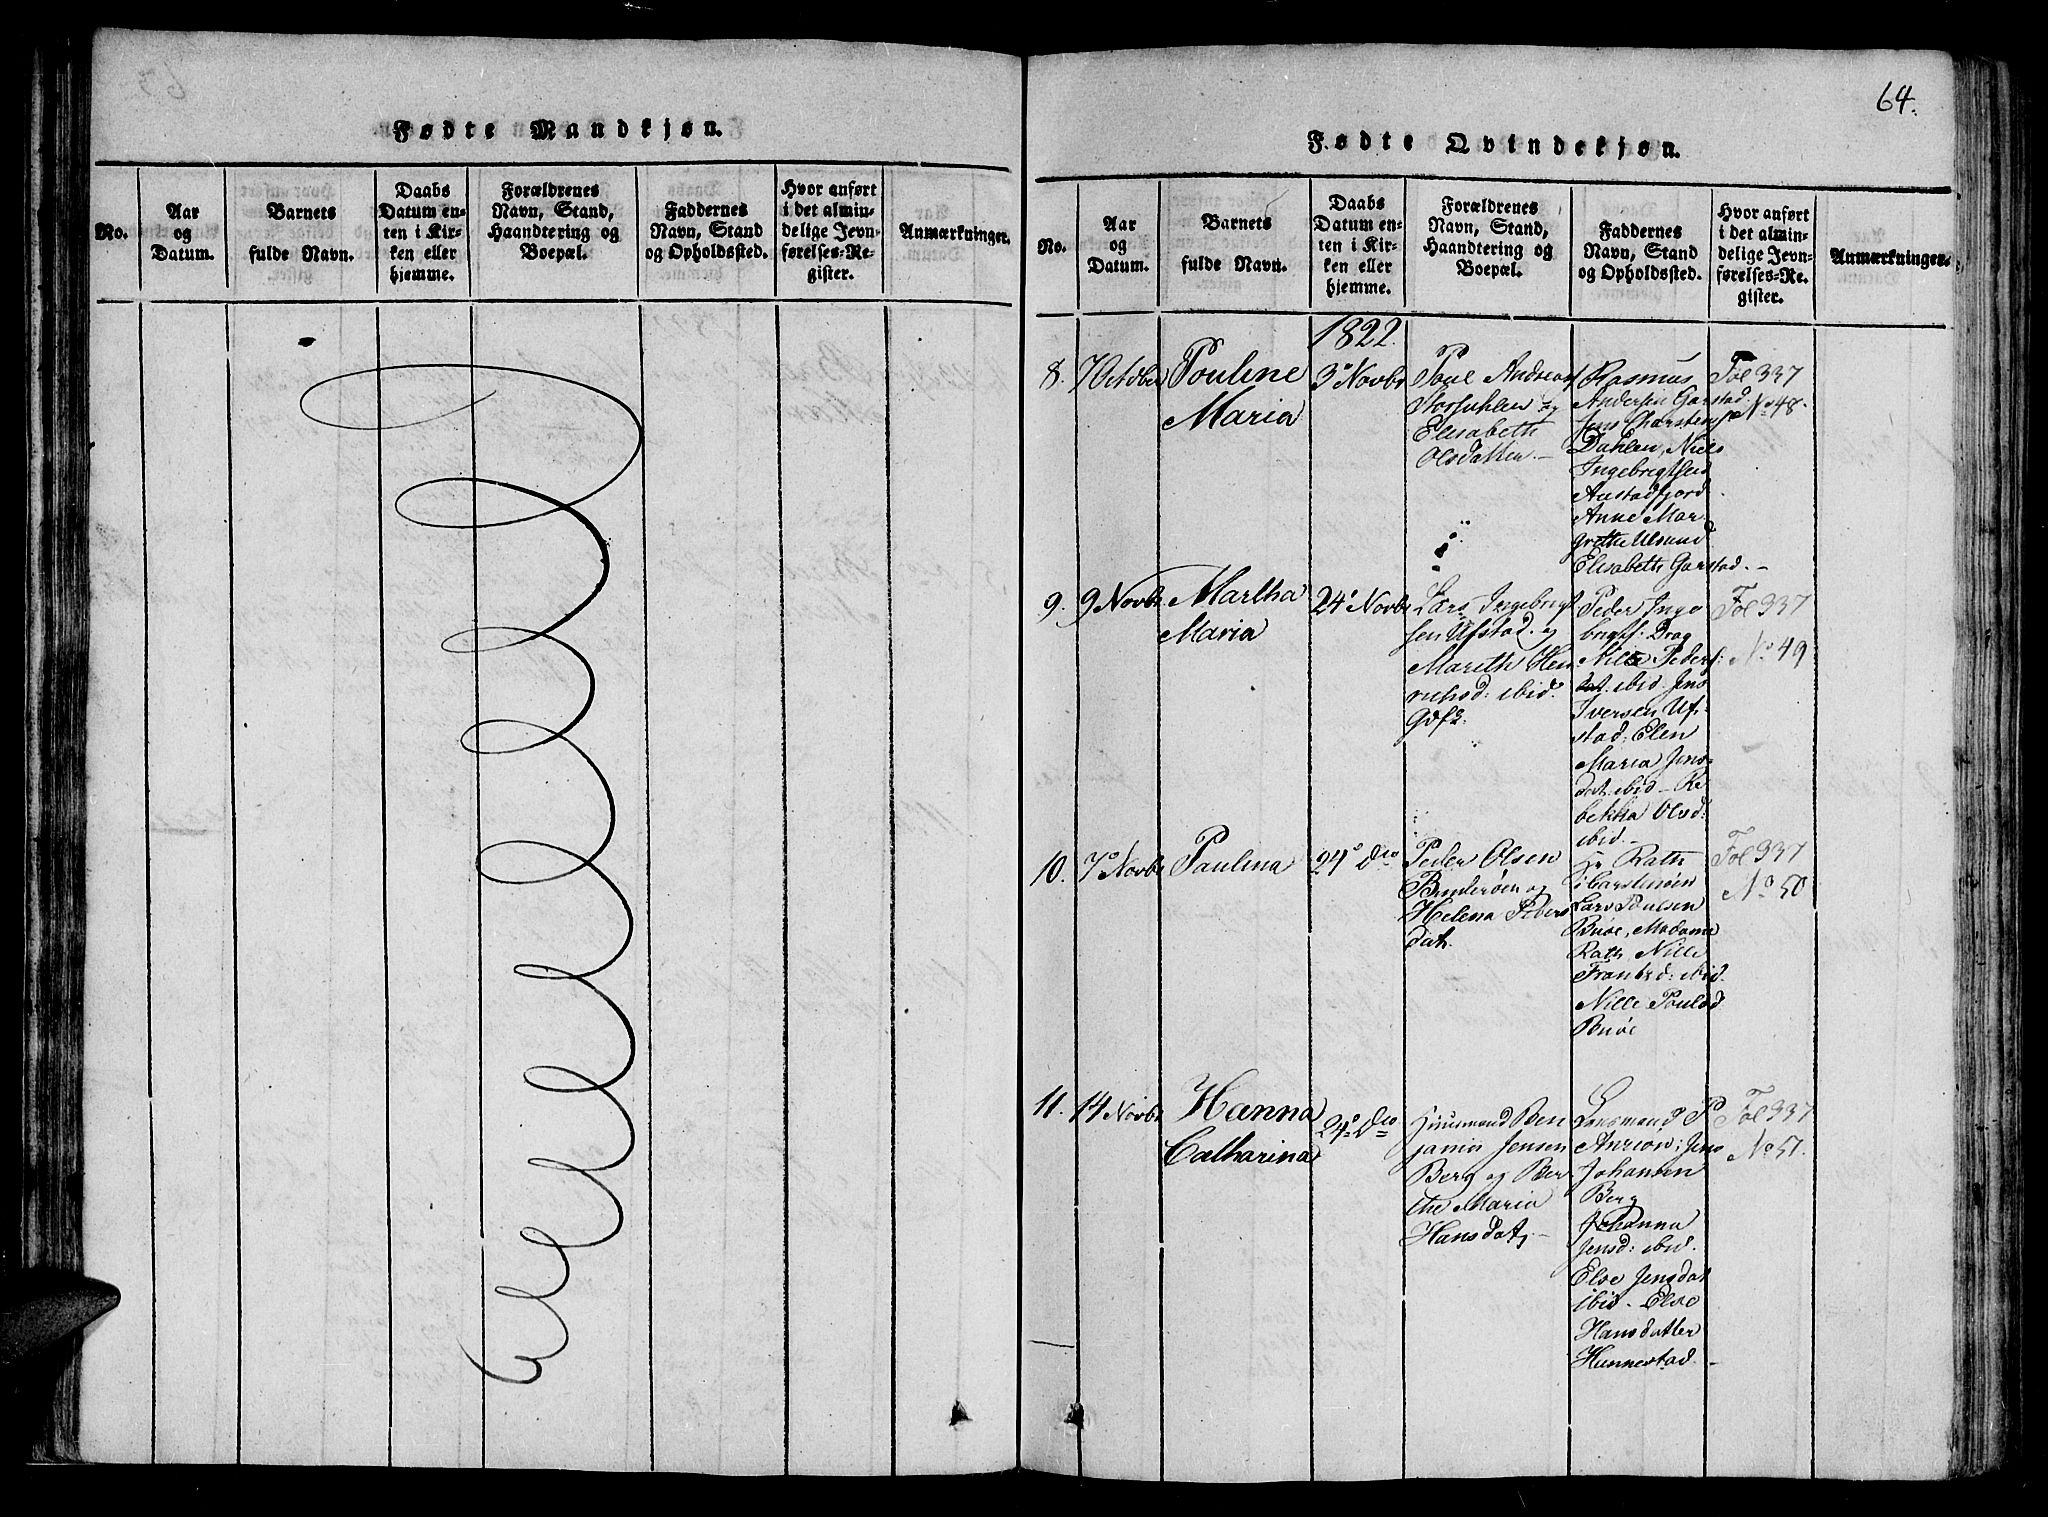 64.
Fødte Mandkjøn.
No.
Aar
og
Datum.
Barnets
fulde Navn.
Daabs
Datum en-
ten i Kir-
ken eller
hjemme.
Forældrenes
Navn, Stand,
Haandtering og
Boepæl.
Faddernes
Navn, Stand
og Opholdssted.
Hvor anført
i det almin-
delige Jevn-
førelses-Re-
gister.
Anmærkninger.
Fødte Qvindekjøn.
No.
Aar
og
Datum.
Barnets
fulde Navn.
Daabs
Datum en-
ten i Kir-
ken eller
hjemme.
Forældrenes
Navn, Stand,
Haandtering og
Boepæl.
Faddernes
Navn, Stand
og Opholdssted.
Hvor anført
i det almin-
delige Jevn-
førelses-Re-
gister.
Anmærkninger.
1822.
8.
7 October
Pouline
Maria
3º Novbr
Poul Andreas
og
Elisabeth
Olsdatter. -
Rasmus
Andersen Garstad
Jens Charstens
Dahlen, Niels
Ingebrigtsen
Austadfjord
Anne Mar
grethe Ulsund
Elisabeth Garstad. -
Fol 337
No 48.
9.
9 Novbr
Martha
Maria
24º Novbr
Lars Ingebrigt
sen Ufstad. og
Mareth Hen
richsd: ibid.
Peder Inge
brigts: Drag
Nille Peders:
dat. ibid. Jens
Iversen Uf-
stad: Elen
Maria Jens-
dat: ibid - Re
bekka Olsd:
ibid. -
Fol 337
No 49
10.
7º Novbr
Paulina
24º dito
Peder Olsen
og
Helena Peders
dat.
Hr Rath
Lars Poulsen
Buøe, Madame
Rath, Nille
Frantzd: ibid.
Nille Poulsd
Buøe
Fol 337
No 50
11.
14 Novbr
Hanna
Catharina
24º dito
Huusmand Ben
jamin Jensen
Berg og Ber
the Maria
Hansdat, -
Lensmand P
Jens
Johansen
Berg
Johanna
Jensd: ibid.
Else Jensdat
ibid. - Else
Hansdatter
Hunnestad. -
Fol 337
No 51.